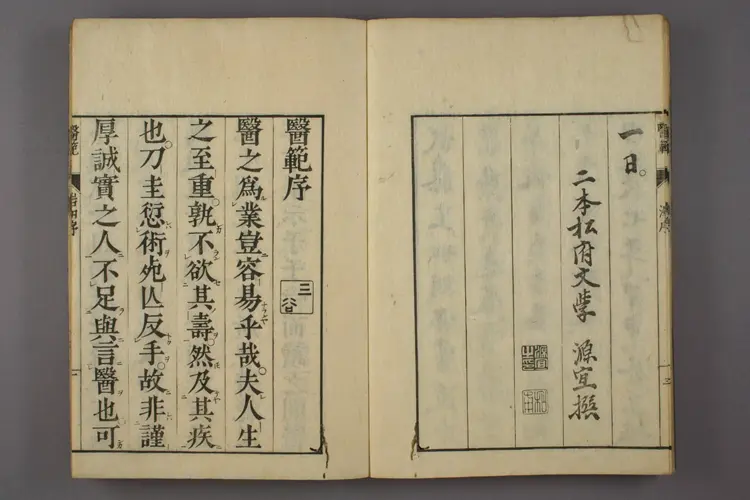 一日
二本松府文學 源宜撰
醫範序
三谷
醫之爲業豈容易乎哉夫人生
之至重孰不欲其壽然及其疾
也刀圭愆術死亾反手故非謹
厚誠實之人不足與言醫也可
醫範